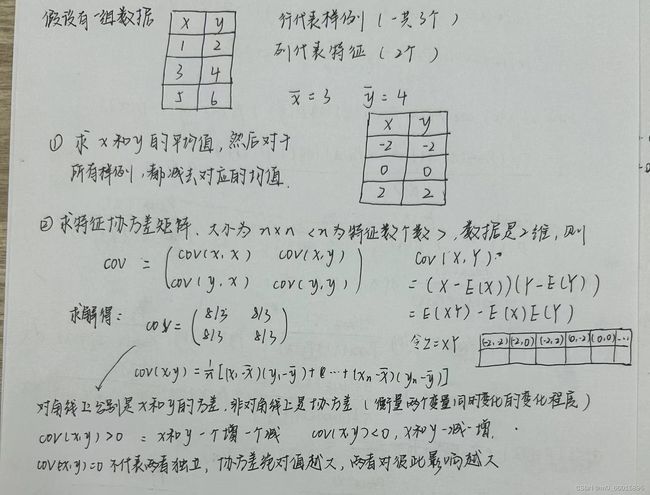 假设有一组数据
x y
1 2
3 4
5 6
行代表样例(一共3个)
列代表特征(2个)
x̄=3 ȳ=4
① 求x和y的平均值,然后对于
所有样例,都减去对应的均值.
x y
-2 -2
0 0
2 2
② 求特征协方差矩阵、大小为n×n <n为特征数个数>,数据是2维,则
COV = (cov(x,x) cov(x,y)
cov(y,x) cov(y,y))
Cov(X,Y):
=(X-E(X))(Y-E(Y))
=E(XY)-E(X)E(Y)
求解得: cov=(8/3 8/3
8/3 8/3)
令Z=XY
(-2,2) (-2,0) (-2,2) (0,-2) (0,0) ...
cov(x,y)=1/n[(x₁-x̄)(y₁-ȳ)+ …+(xn-x̄)(yn-ȳ)]
对角线上分别是x和y的方差,非对角线上是协方差(衡量两个变量间同时变化的变化程度)
cov(x,y)>0 = x和y一个增一个减 cov(x,y)<0, x和y一减一增.
cov(x,y)=0 不代表两者独立,协方差绝对值越大,两者对彼此影响越大